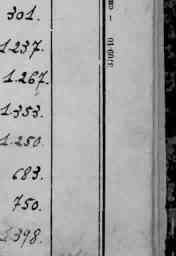 301.
1237.
1.267.
1353.
1.250.
683.
750.
1398.